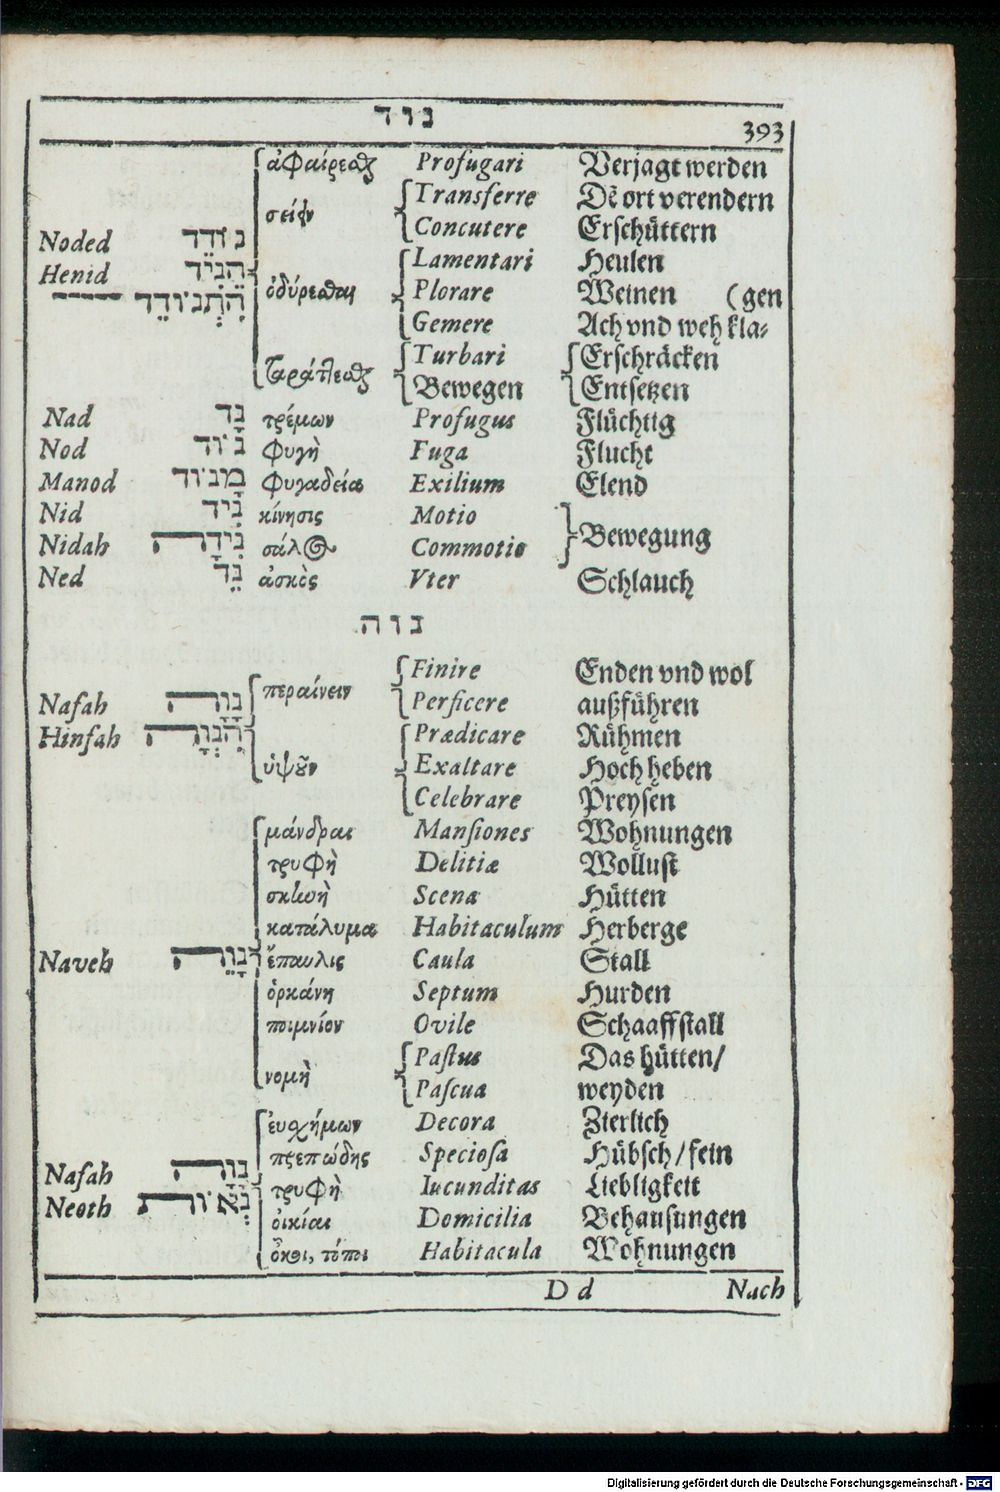 נוד
393
ἀφαίρεσθαι Profugari Verjagt werden
σείειν Transferre Dē ort verendern
Concutere Erschüttern
Noded נוֹדֵד
Lamentari Heulen
Henid הֵנִיד
ὀδύρεσθαι Plorare Weinen (gen
הִתְנוֹדֵד
Gemere Ach vnd weh kla-
ταράττεσθαι Turbari Erschräcken
Bewegen Entsetzen
Nad נָד τρέμων Profugus Flüchtig
Nod נוֹד φυγὴ Fuga Flucht
Manod מָנוֹד φυγαδεία Exilium Elend
Nid נִיד κίνησις Motio
Bewegung
Nidah נִידָה σάλος Commotio
Ned נֵד ἀσκὸς Vter Schlauch
נוה
περαίνειν Finire Enden vnd wol
Nafah נָוָה Perficere außführen
Hinfah הִנְוָה Prædicare Rühmen
ὑψοῦν Exaltare Hoch heben
Celebrare Preysen
μάνδραι Mansiones Wohnungen
τρυφὴ Delitiæ Wollust
σκηνὴ Scena Hütten
κατάλυμα Habitaculum Herberge
Naveh נָוֶה ἔπαυλις Caula Stall
ὁρκάνη Septum Hurden
ποιμνίον Ovile Schaaffstall
νομὴ Pastus Das hütten/
Pascua weyden
ἐυσχήμων Decora Zierlich
πρεπώδης Speciosa Hübsch/fein
Nafah נָוָה
τρυφὴ Iucunditas Liebligkeit
Neoth נְאוֹת
οἰκίαι Domicilia Behausungen
οἶκοι, τόποι Habitacula Wohnungen
D d Nach
Digitalisierung gefördert durch die Deutsche Forschungsgemeinschaft - DFG